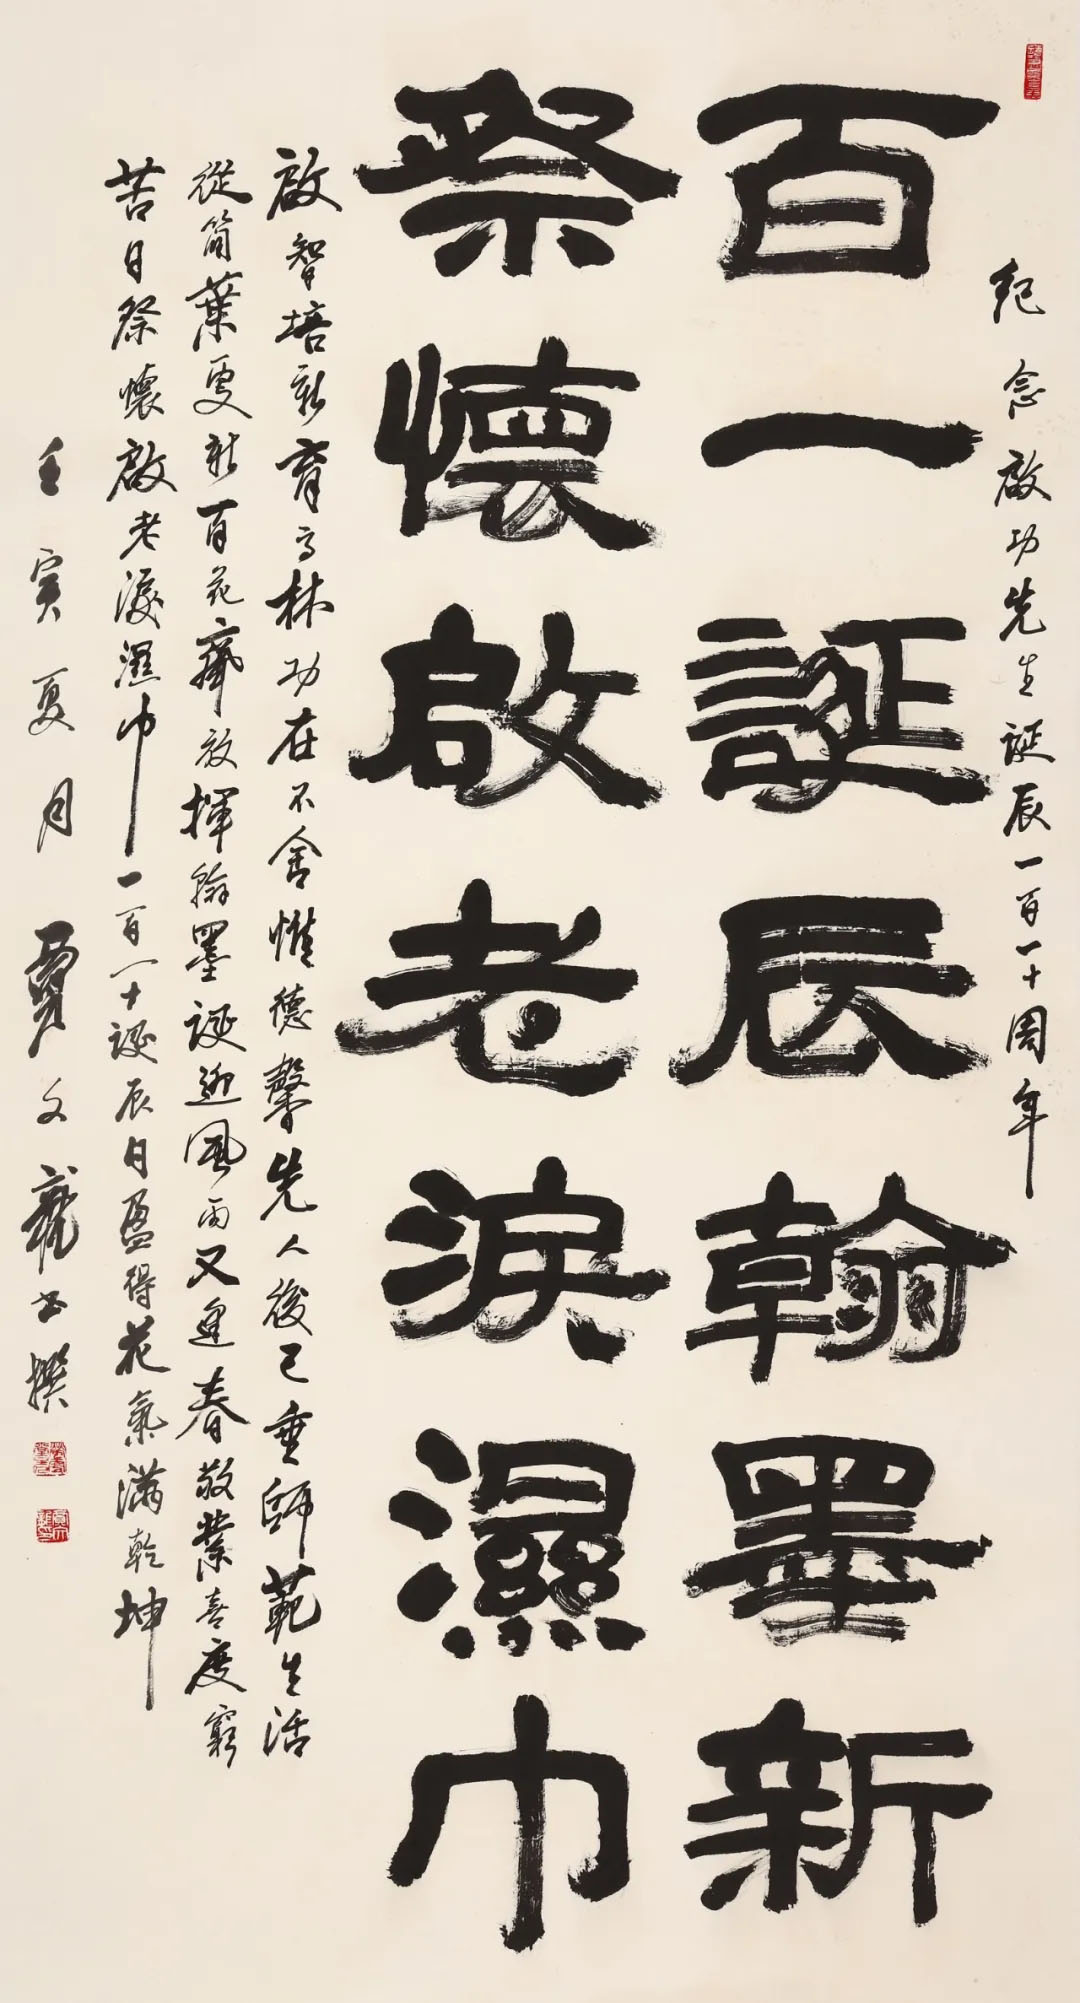 紀念啟功先生誕辰一百一十周年
百一誕辰翰墨新
祭懷啟老淚濕巾
啟智培新育高林功在不舍惟德馨先人後己垂師範生活
從簡葉更新百花齊放揮翰墨誕迎風雨又迎春敬業喜度窮
苦日祭懷啟老淚濕巾一百一十誕辰日盈得花氣滿乾坤
壬寅夏月賈文龍書撰